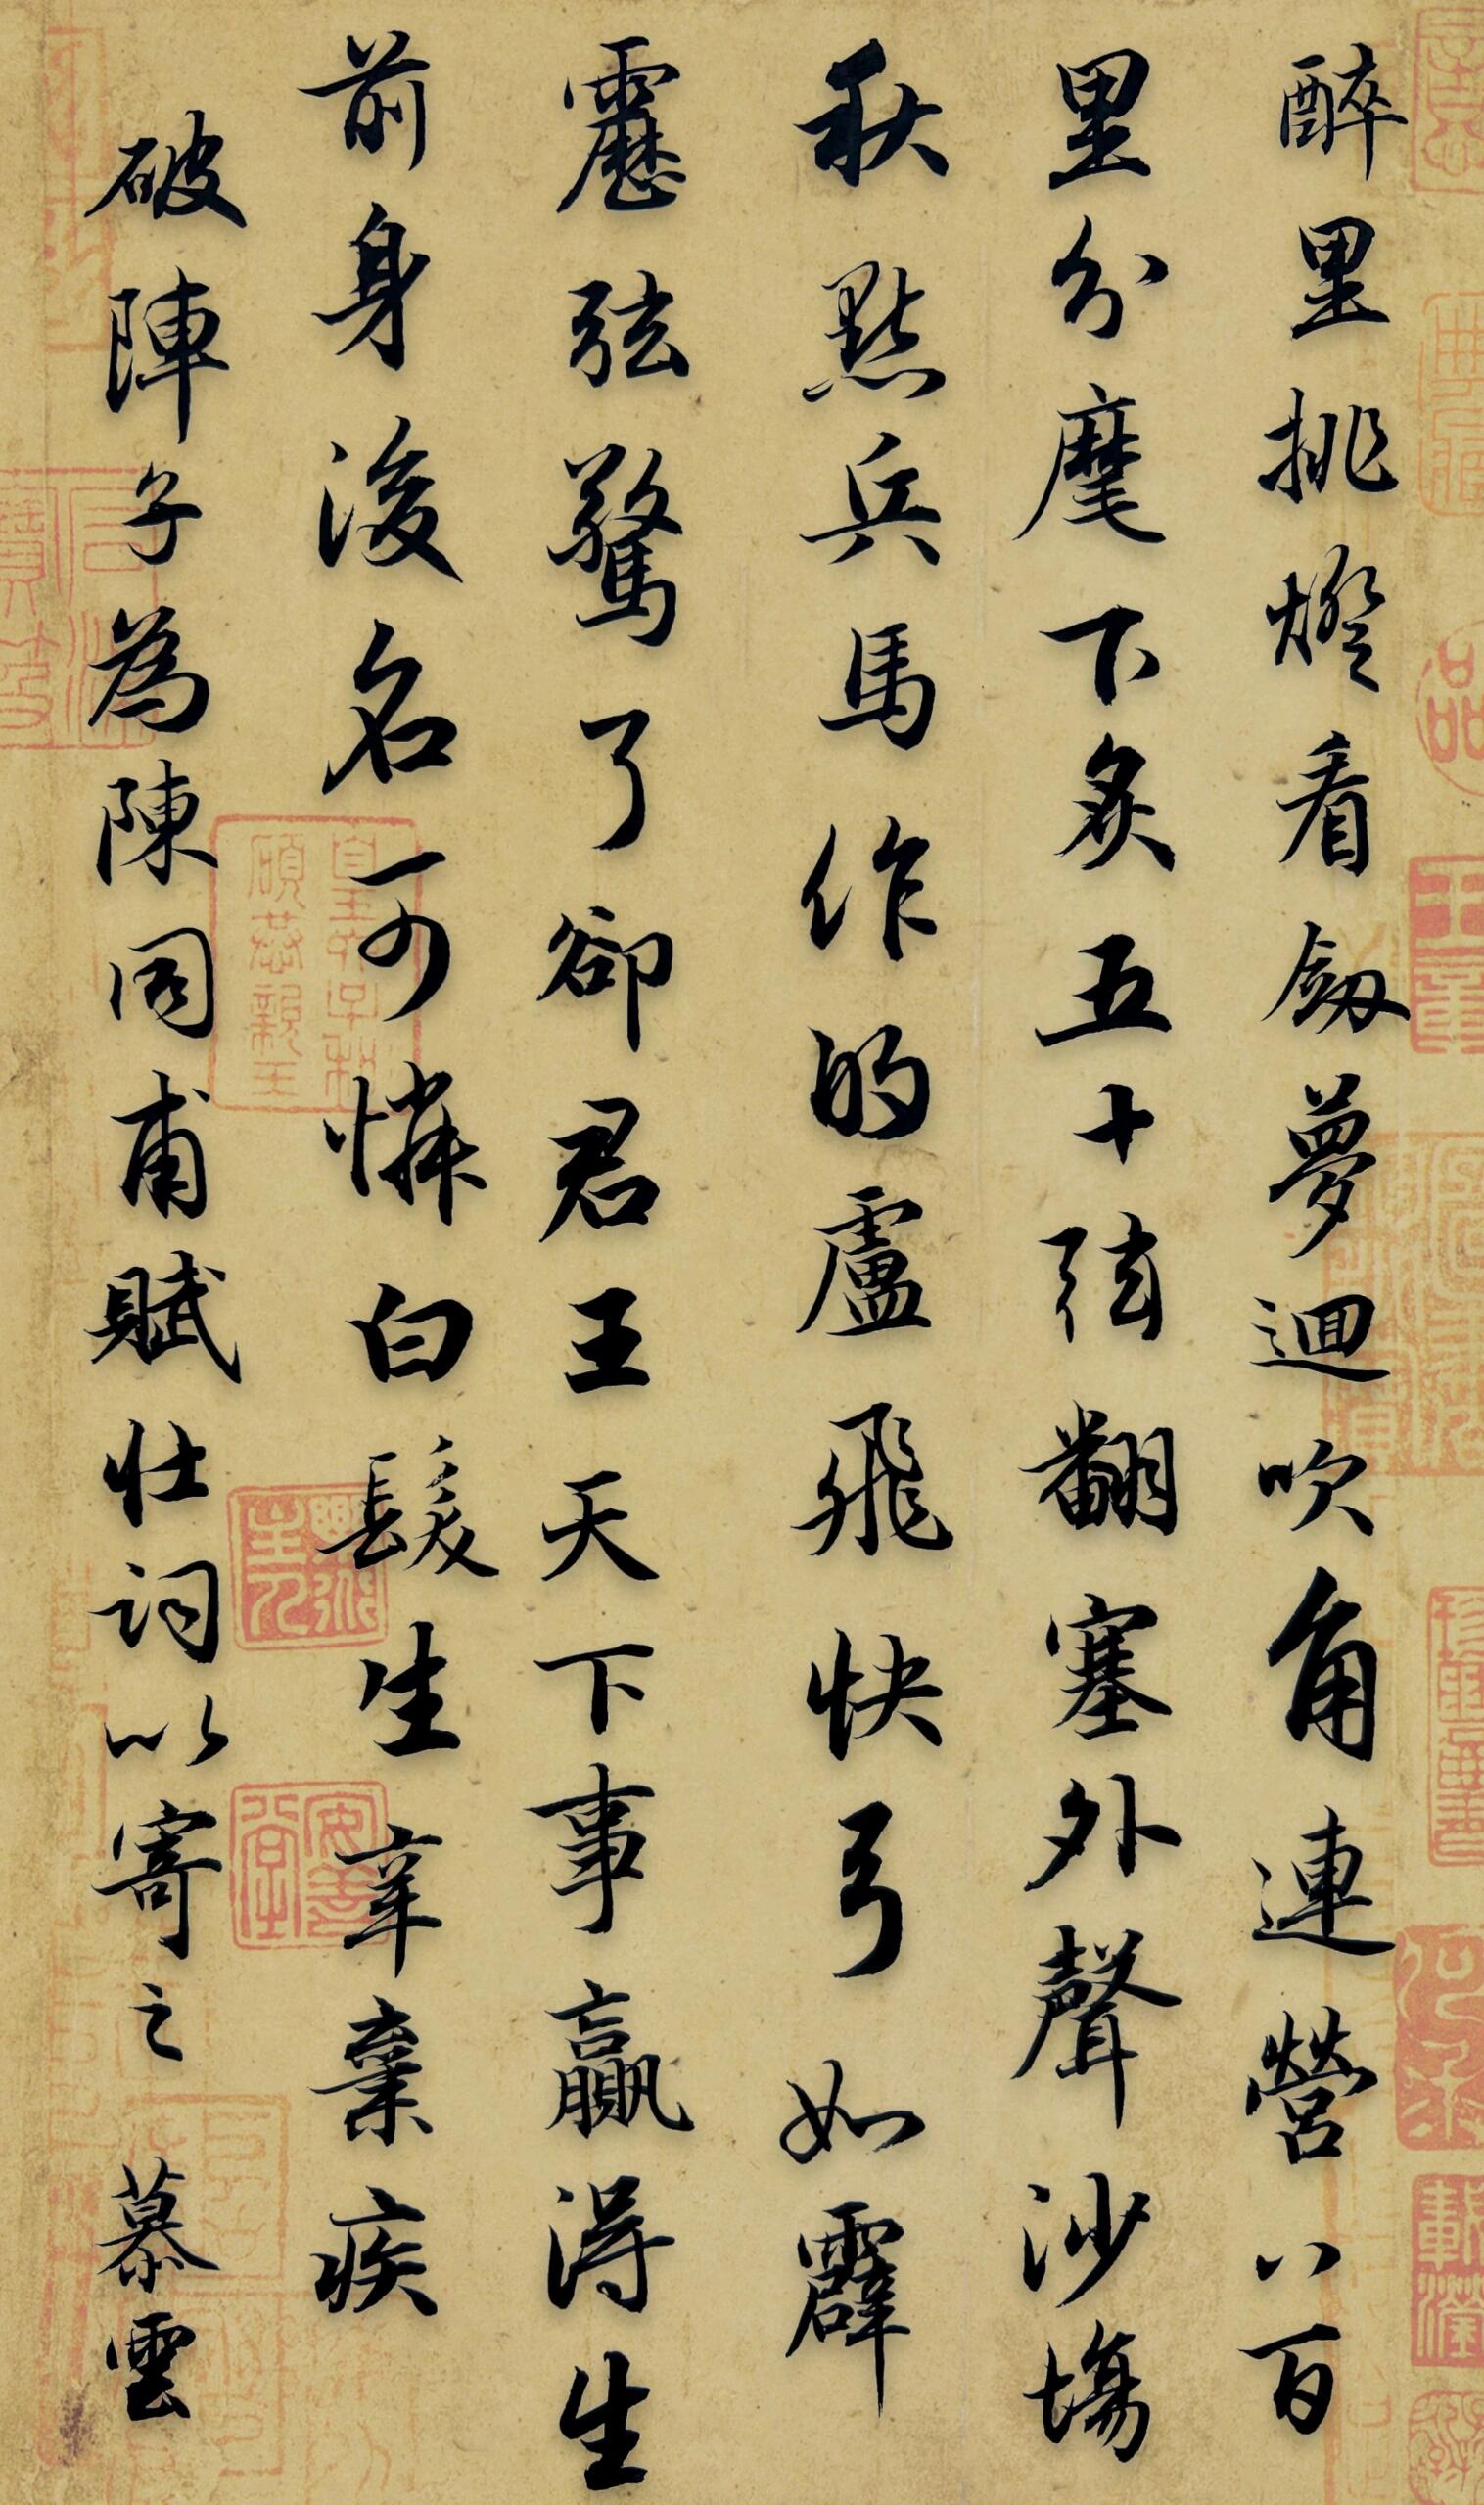 醉里挑燈看劔夢迴吹角連營八百
里分麾下炙五十弦翻塞外聲沙場
秋點兵馬作的盧飛快弓如霹
靂弦驚了卻君王天下事贏得生
前身後名可憐白髮生辛棄疾
破陣子為陳同甫賦壯詞以寄之慕雲
皇六子和碩恭親王